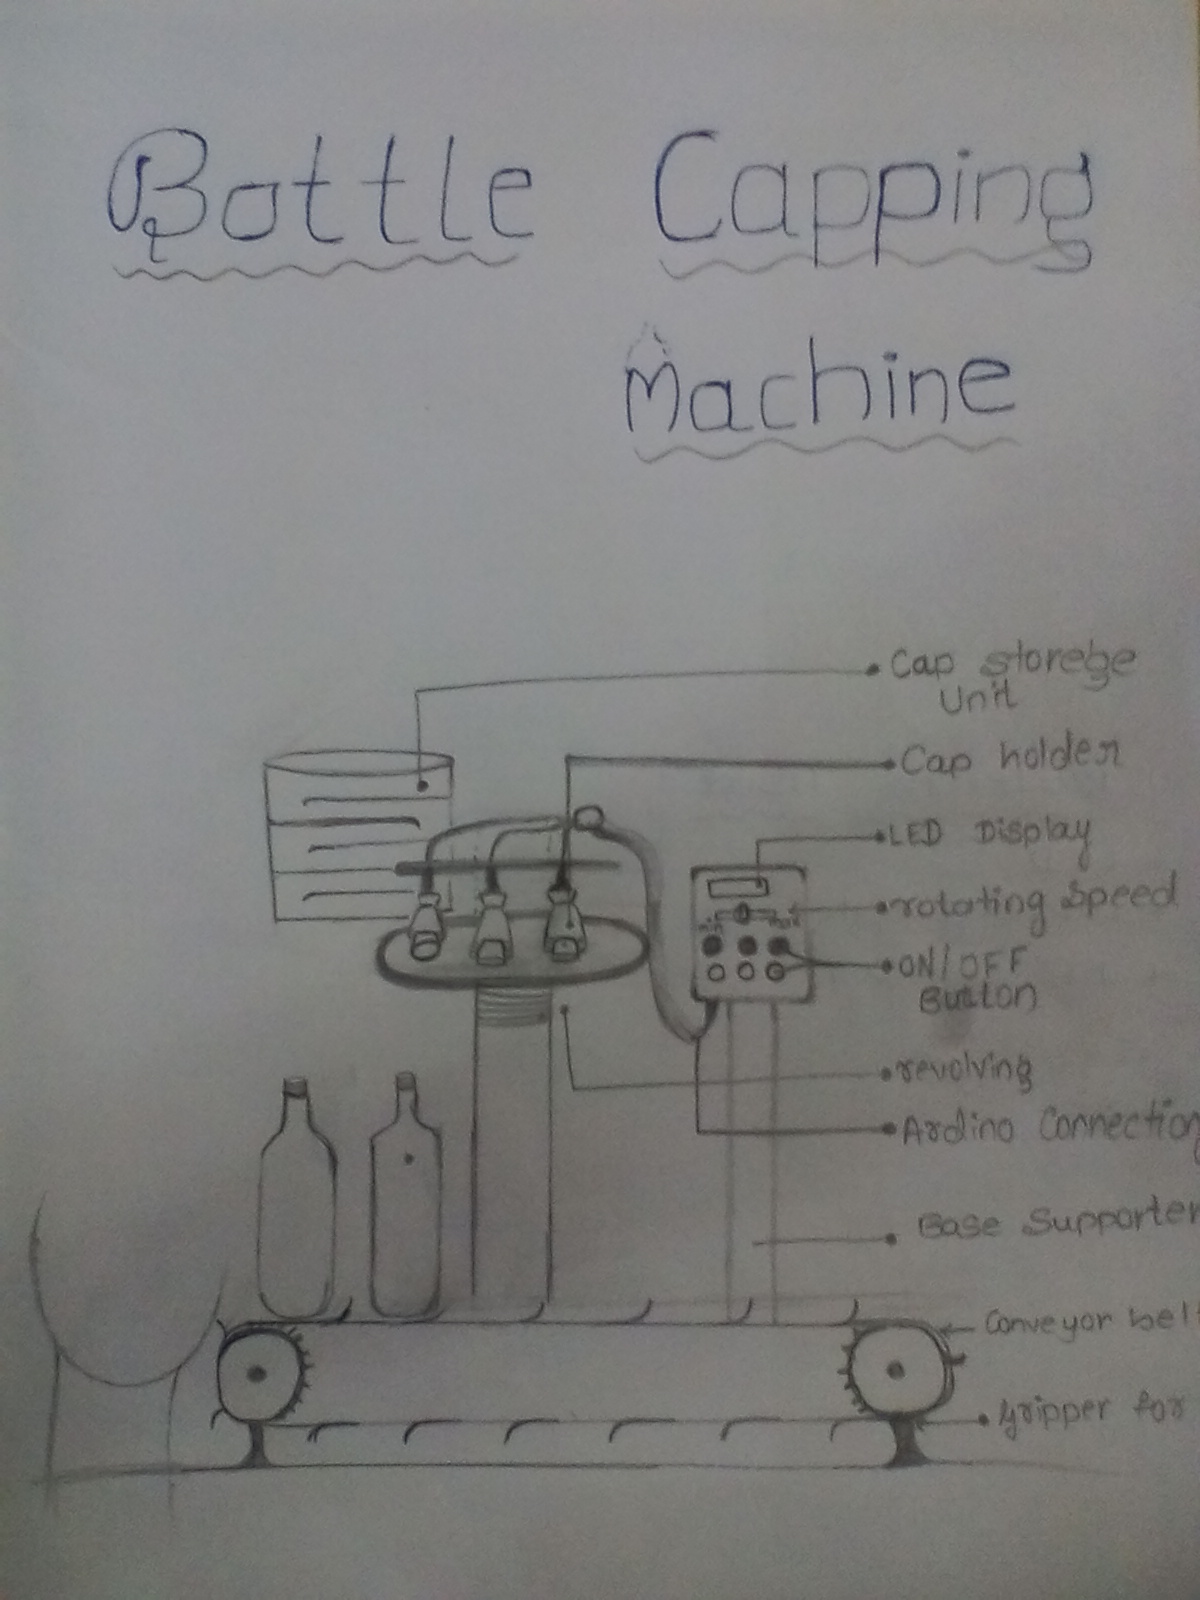 Bottle Capping
Machine
Cap storege
Unit
Cap holder
LED Display
rotating Speed
min max
ON/OFF
Button
revolving
Ardino Connection
Base Supporter
Conveyor bel
Gripper for